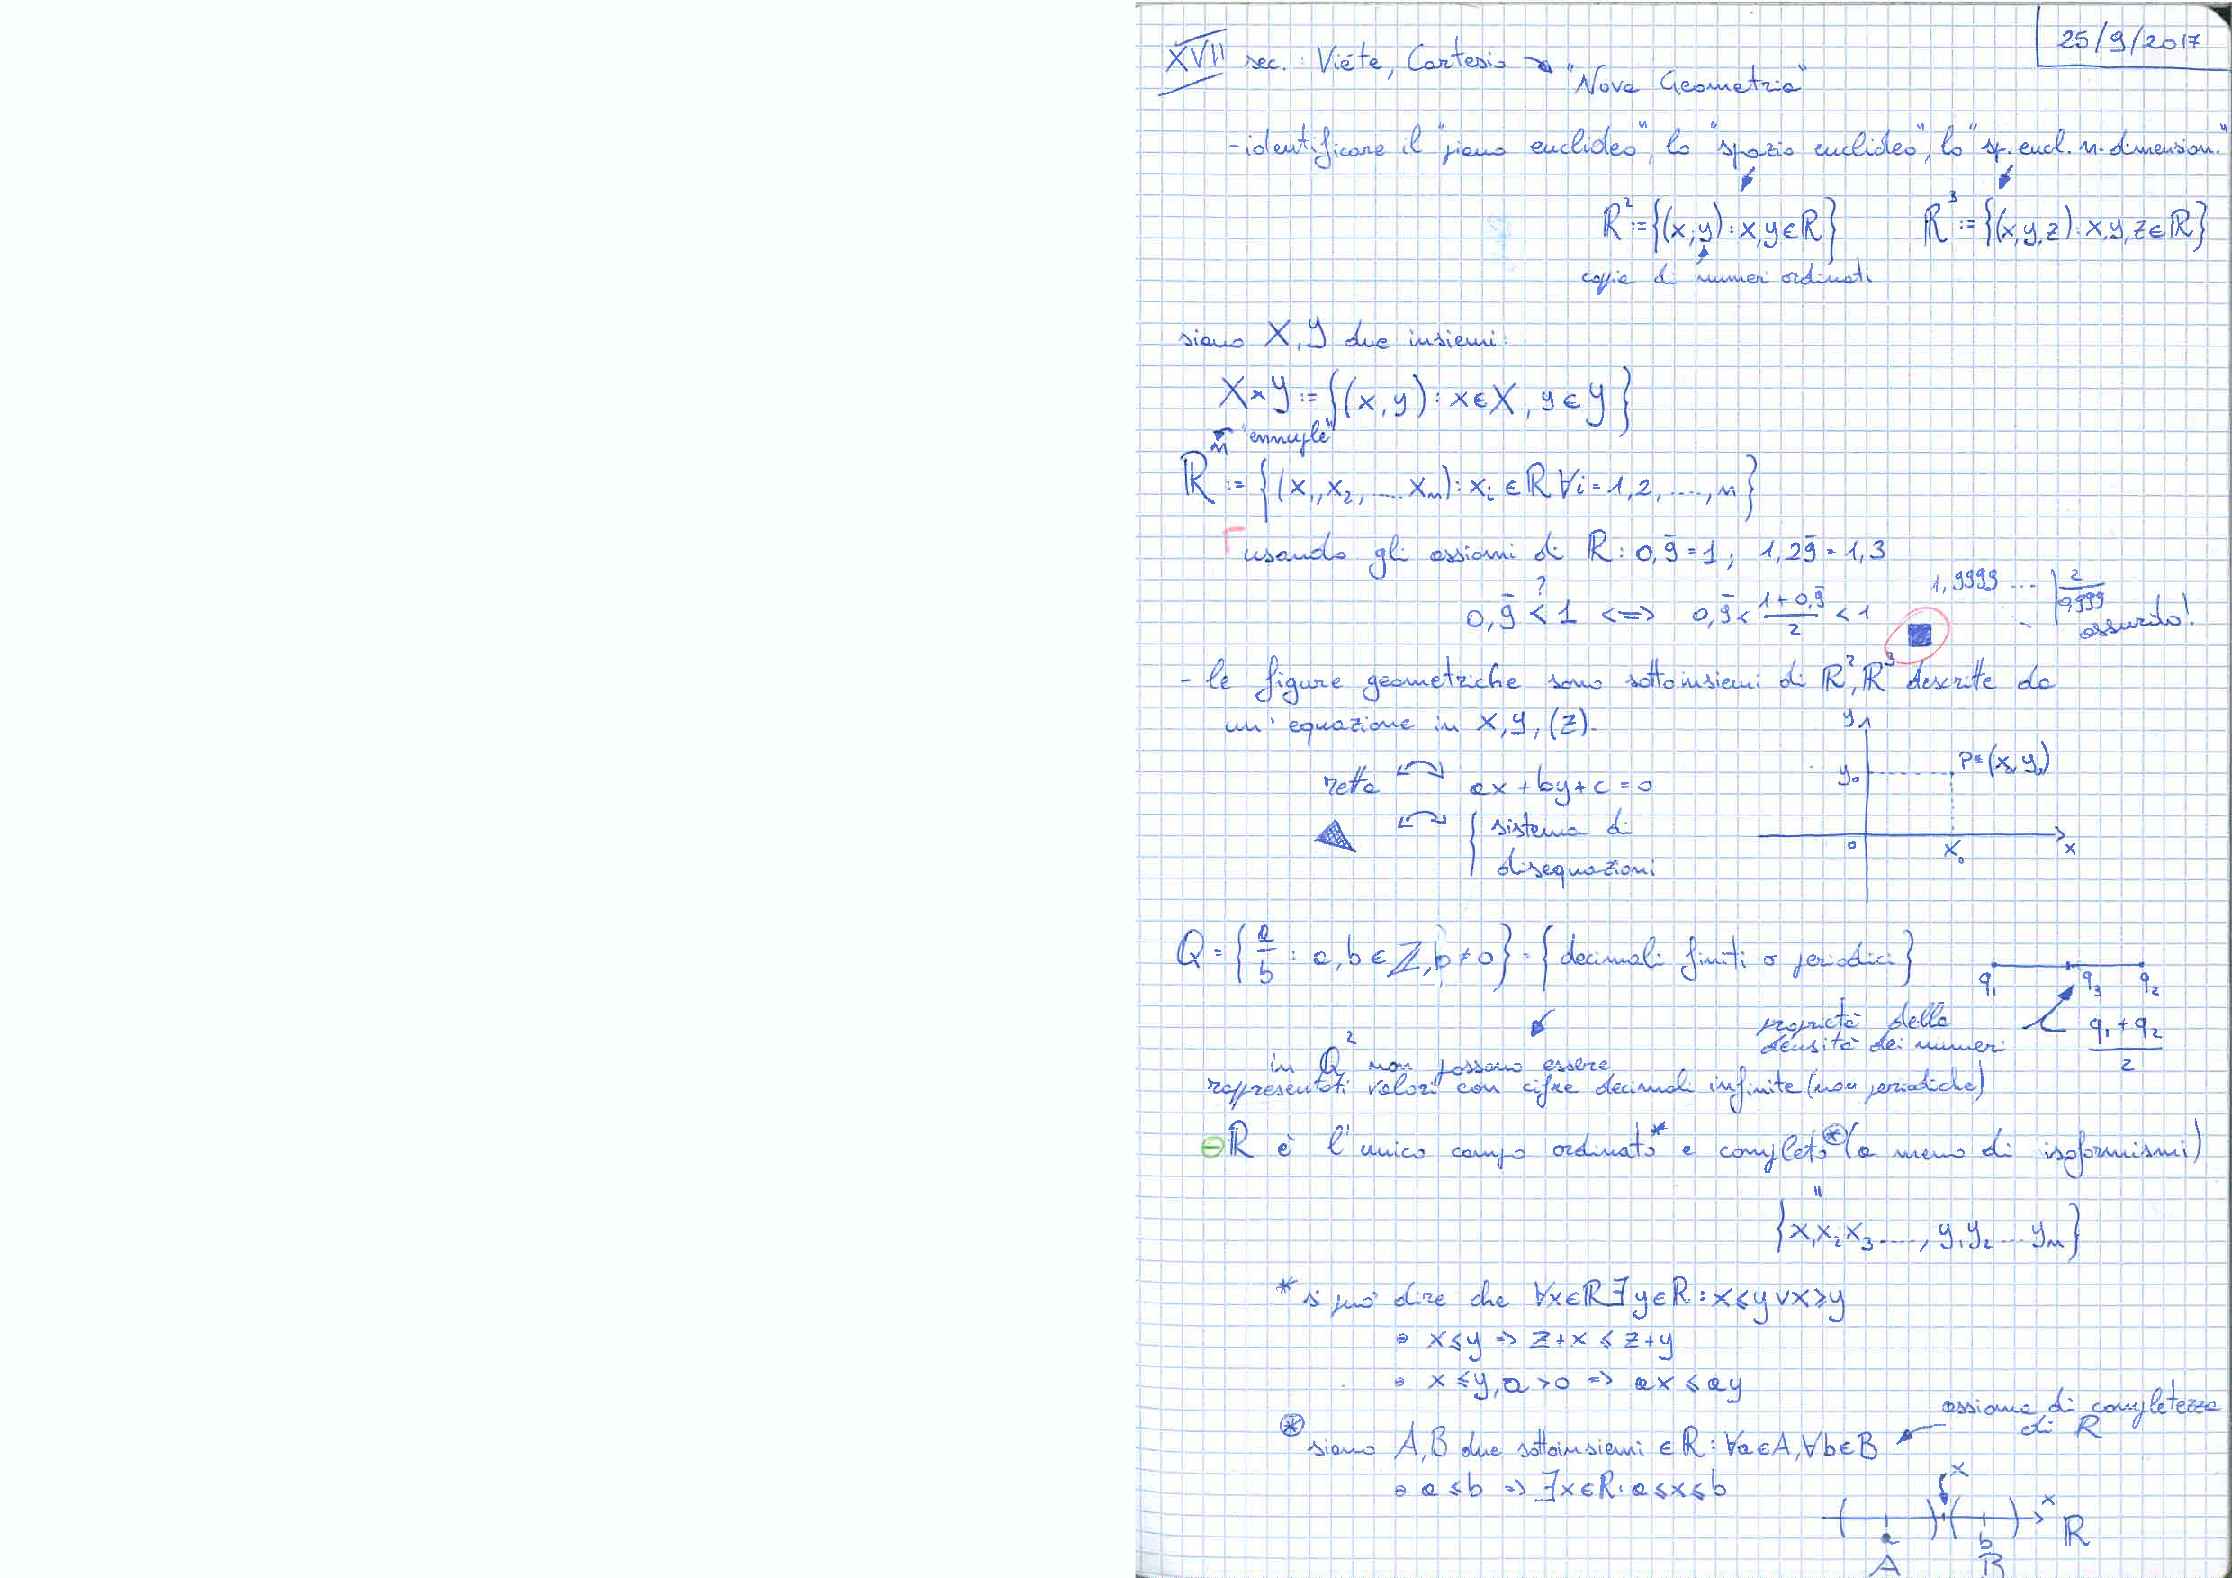 25/9/2017
XVII sec.: Viéte, Cartesio → "Nova Geometria"
- identificare il "piano euclideo", lo "spazio euclideo", lo "sp. eucl. n. dimension."
ℝ² := {(x,y) : x,y ∈ ℝ} ℝ³ := {(x,y,z) : x,y,z ∈ ℝ}
coppia di numeri ordinati
siano X, Y due insiemi:
X × Y := {(x,y) : x ∈ X, y ∈ Y}
"ennuple"
ℝⁿ := {(x₁, x₂, .... xₙ) : xᵢ ∈ ℝ ∀i = 1,2, ...., n}
usando gli assiomi di ℝ : 0,9̄ = 1 ; 1,29̄ = 1,3
0,9̄ <? 1 <=> 0,9̄ < (1+0,9̄)/2 < 1
1,9999 ... | 2
0,999
assurdo!
- le figure geometriche sono sottoinsiemi di ℝ², ℝ³ descritte da
un'equazione in x, y, (z).
retta ↔ ax + by + c = 0
↔ { sistema di
disequazioni
y
y₀ P=(x₀, y₀)
0 x₀ x
Q = {a/b : a,b ∈ ℤ, b ≠ 0} = {decimali finiti o periodici}
q₁ q₃ q₂
proprietà della
densità dei numeri
(q₁+q₂)/2
in Q² non possono essere
rappresentati valori con cifre decimali infinite (non periodiche)
ℝ è l'unico campo ordinato* e completo⊛ (a meno di isoformismi)
"
{x₁x₂x₃ ...., y₁y₂ .... yₙ}
* si può dire che ∀x∈ℝ ∃ y∈ℝ : x≤y ∨ x≥y
• x≤y => z+x ≤ z+y
• x≤y, a>0 => ax ≤ ay
assioma di completezza
di ℝ
⊛ siano A, B due sottoinsiemi ∈ ℝ : ∀a∈A, ∀b∈B
• a≤b => ∃x∈ℝ : a≤x≤b
x
x
ℝ
a b
A B